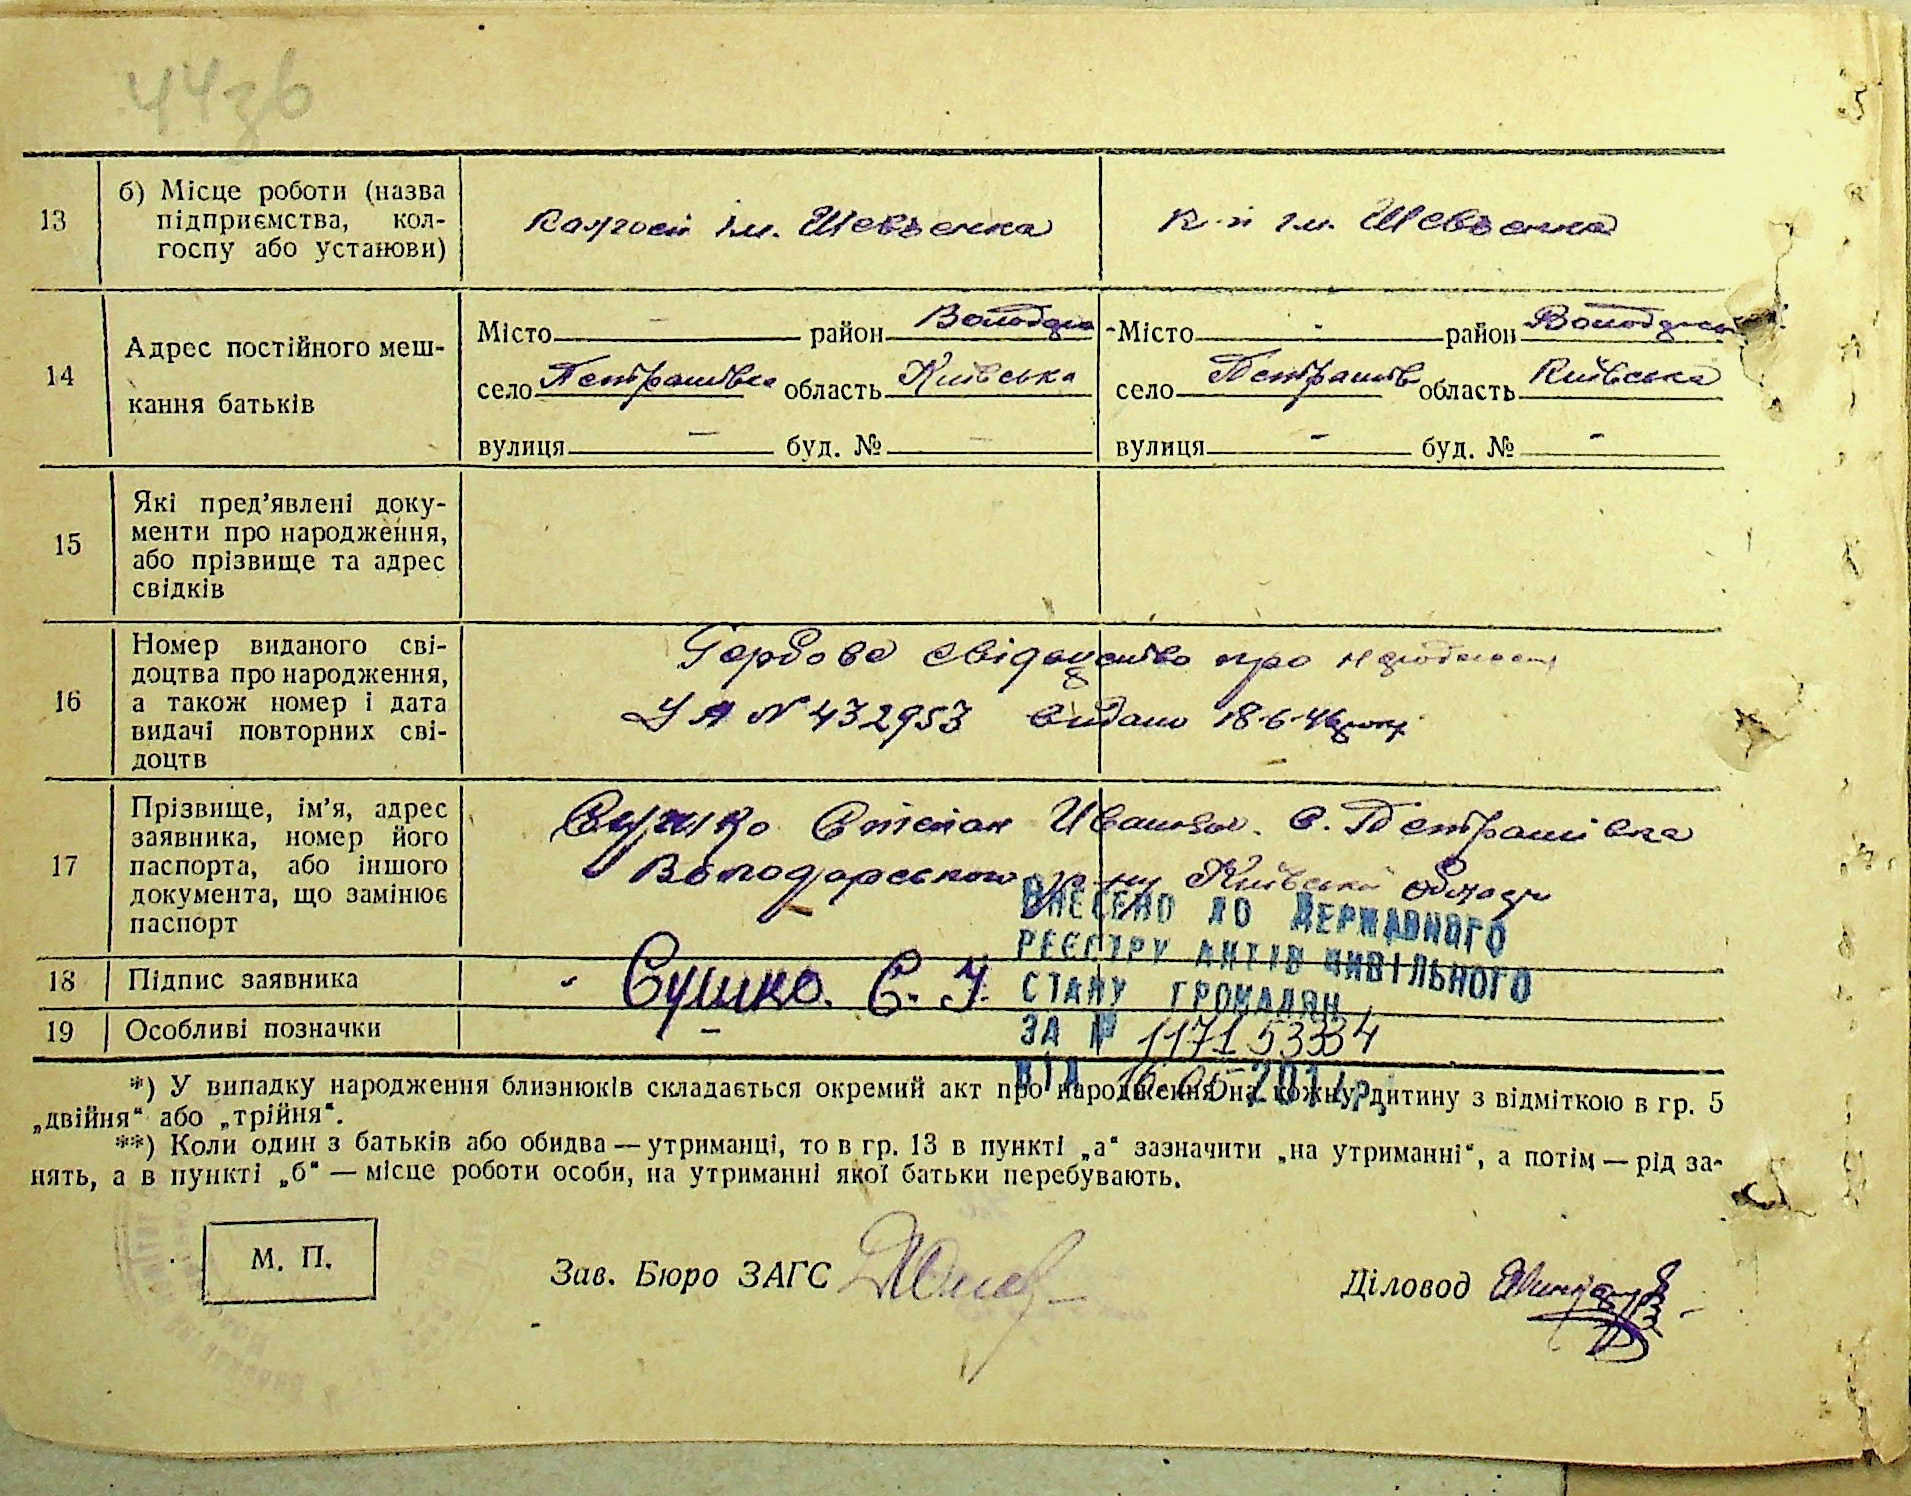 44зв
13
б) Місце роботи (назва
підприємства, кол-
госпу або установи)
Колгосп ім. Шевченка
к-п ім. Шевченка
14
Адрес постійного меш-
кання батьків
Місто - район Володарс
село Петрашівка область Київська
вулиця - буд. № -
Місто - район Володарськ
село Петрашів область Київська
вулиця - буд. № -
15
Які пред'явлені доку-
менти про народження,
або прізвище та адрес
свідків
16
Номер виданого сві-
доцтва про народження,
а також номер і дата
видачі повторних сві-
доцтв
Гербове свідоцтво про народження
УА № 432953 видано 18-6-46 року
17
Прізвище, ім'я, адрес
заявника, номер його
паспорта, або іншого
документа, що замінює
паспорт
Сушко Степан Иванов. с. Петрашівка
Володарського р-ну Київської області
18
Підпис заявника
Сушко. С. І.
19
Особливі позначки
-
ВНЕСЕНО ДО ДЕРЖАВНОГО
РЕЄСТРУ АКТІВ ЦИВІЛЬНОГО
СТАНУ ГРОМАДЯН
ЗА № 117153334
ВІД 16.05 201 р.
*) У випадку народження близнюків складається окремий акт про народження на кожну дитину з відміткою в гр. 5
„двійня“ або „трійня“.
**) Коли один з батьків або обидва — утриманці, то в гр. 13 в пункті „а“ зазначити „на утриманні“, а потім — рід за-
нять, а в пункті „б“ — місце роботи особи, на утриманні якої батьки перебувають.
М. П.
Зав. Бюро ЗАГС
Діловод